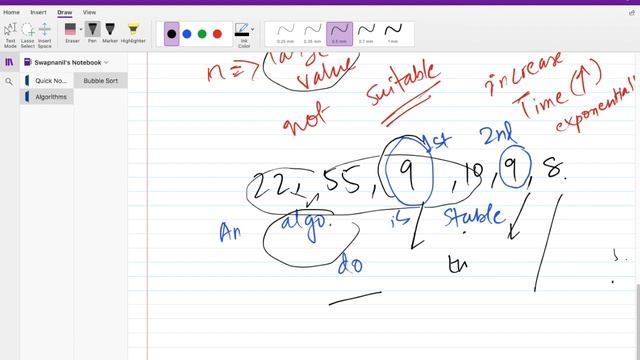 Home Insert Draw View
Text Mode Lasso Select Insert Space Eraser Pen Marker Highlighter 0.25 mm 0.35 mm 0.5 mm 0.7 mm 1 mm Ink Color Draw with Trackpad
Swapnanil's Notebook
Quick No... Bubble Sort
Algorithms
n => large value
not suitable
increase Time (↑) exponential
1st 2nd
22, 55, 9, 10, 9, 8.
An algo. is stable
do th